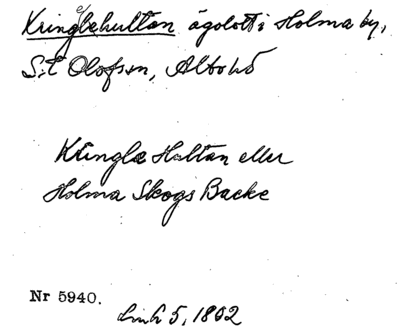 Kringlehultan ägolott i Holma by,
S:t Olofsson,
Kringle Hultan eller
Holma Skogs Backe
Nr 5940.
5, 1802